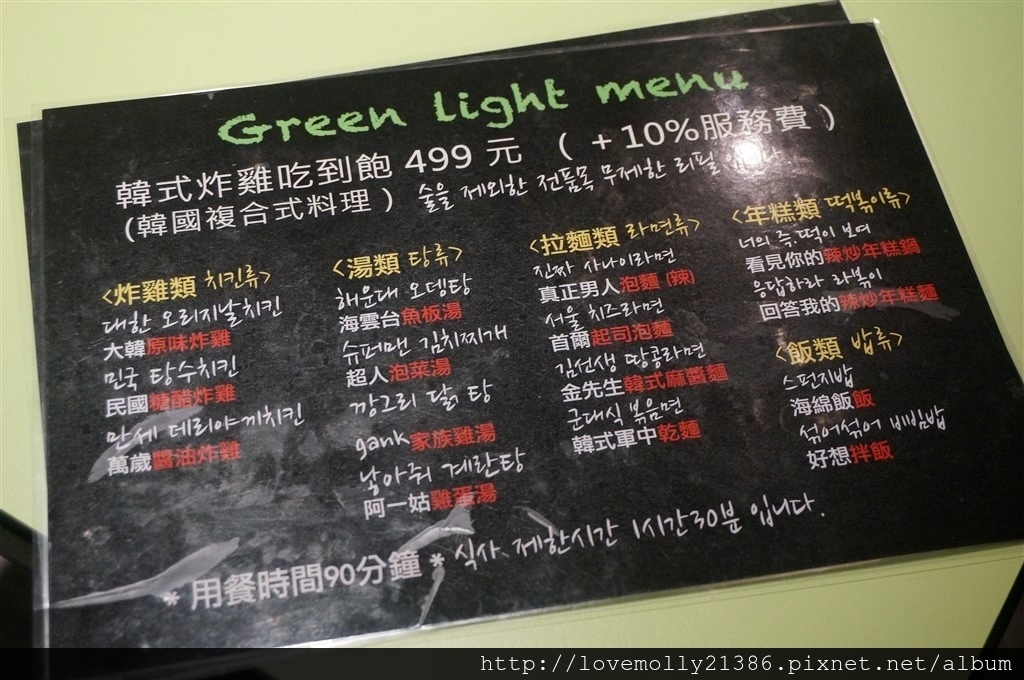 Green light menu
韓式炸雞吃到飽 499 元 ( +10%服務費 )
(韓國複合式料理) 술을 제외한 전품목 무제한 리필
<炸雞類 치킨류>
대한 오리지날치킨
大韓原味炸雞
민국 탕수치킨
民國糖醋炸雞
만세 데리야끼치킨
萬歲醬油炸雞
<湯類 탕류>
해운대 오뎅탕
海雲台魚板湯
슈퍼맨 김치찌개
超人泡菜湯
깡그리 닭 탕
gank家族雞湯
낳아줘 계란탕
阿一姑雞蛋湯
<拉麵類 라면류>
진짜 사나이라면
真正男人泡麵 (辣)
서울 치즈라면
首爾起司泡麵
김선생 땅콩라면
金先生韓式麻醬麵
군대식 볶음면
韓式軍中乾麵
<年糕類 떡볶이류>
너의 죽.떡이 보여
看見你的辣炒年糕鍋
응답하라 라볶이
回答我的辣炒年糕麵
<飯類 밥류>
스펀지밥
海綿飯飯
섞어섞어 비빔밥
好想拌飯
* 用餐時間90分鐘 * 식사 제한시간 1시간30분 입니다.
http://lovemolly21386.pixnet.net/album